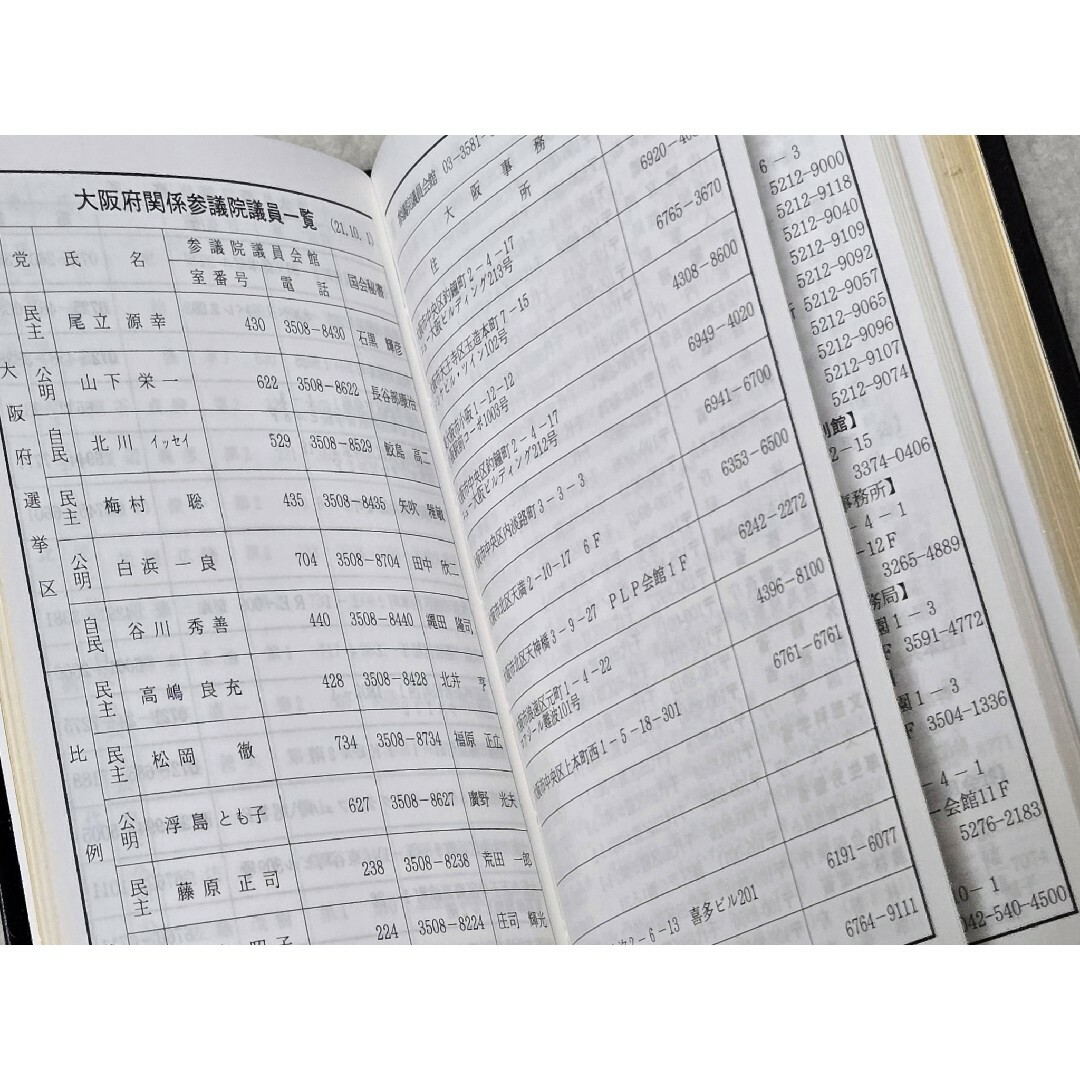 大阪府関係参議院議員一覧 (21.10.1)
党 氏名 参議院議員会館 国会秘書
室番号 電話
大阪府選挙区
民主 尾立 源幸 430 3508-8430 石黒 輝彦
公明 山下 栄一 622 3508-8622 長谷部康治
自民 北川 イッセイ 529 3508-8529 鮫島 高二
民主 梅村 聡 435 3508-8435 矢吹 雅敏
公明 白浜 一良 704 3508-8704 田中 欣二
自民 谷川 秀善 440 3508-8440 縄田 隆司
比例
民主 高嶋 良充 428 3508-8428 北井 亨
民主 松岡 徹 734 3508-8734 福原 正広
公明 浮島とも子 627 3508-8627 廣野 光夫
民主 藤原 正司 238 3508-8238 荒田 一郎
224 3508-8224 庄司 輝光
参議院議員会館 03-3581-
大阪事務所
住
市中央区釣鐘町2-4-17
ュー大阪ビルディング213号
6920-40
市天王寺区玉造本町7-15
ビル・ツイン102号
6765-3670
市小阪1-12-12
コーポ1003号
4308-8600
市中央区釣鐘町2-4-17
ュー大阪ビルディング212号
6949-4020
市中央区内淡路町3-3-3
6941-6700
市北区天満2-10-17 6F
6353-6500
市北区天神橋3-9-27 PLP会館1F
6242-2272
市浪速区元町1-4-22
ール難波101号
4396-8100
市中央区上本町西1-5-18-301
6761-6761
6191-6077
2-6-13 喜多ビル201
6764-9111
6-3
5212-9000
5212-9118
5212-9040
5212-9109
5212-9092
5212-9057
5212-9065
5212-9096
5212-9107
5212-9074
館】
2-15
3374-0406
事務所】
-4-1
-12F
3265-4889
務局】
園1-3
F 3591-4772
園1-3
F 3504-1336
-4-1
会館11F
5276-2183
0-1
042-540-4500